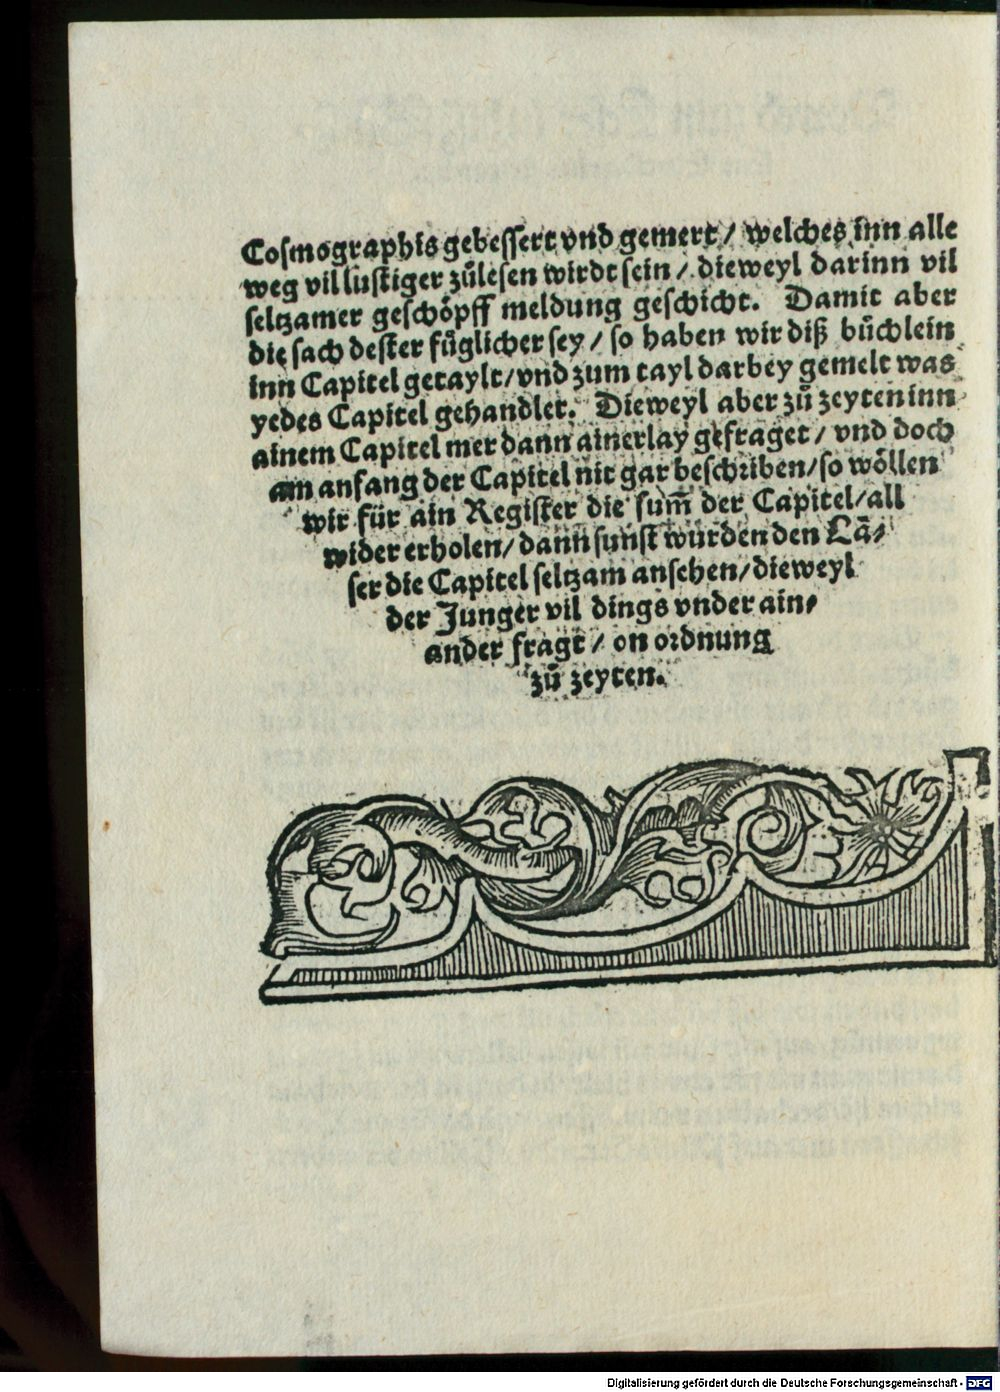 Cosmographis gebessert vnd gemert / welches inn alle
weg vil lustiger zůlesen wirdt sein / dieweyl darinn vil
seltzamer geschöpff meldung geschicht. Damit aber
die sach dester füglicher sey / so haben wir diß büchlein
inn Capitel getaylt / vnd zum tayl darbey gemelt was
yedes Capitel gehandlet. Dieweyl aber zů zeyten inn
ainem Capitel mer dann ainerlay gefraget / vnd doch
am anfang der Capitel nit gar beschriben / so wöllen
wir für ain Register die sum̃ der Capitel / all
wider erholen / dann sunst würden den Lä⸗
ser die Capitel seltzam ansehen / dieweyl
der Junger vil dings vnder ain⸗
ander fragt / on ordnung
zů zeyten.
Digitalisierung gefördert durch die Deutsche Forschungsgemeinschaft - DFG